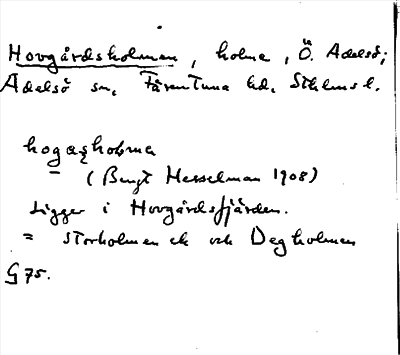 Hovgårdsholmen, holme, Ö. Adelsö;
Adelsö sn, Färentuna hd, Sthlms l.
hogaʂholmɐ
(Bengt Hesselman 1908)
Ligger i Hovgårdsfjärden.
= Storholmen ek och Degholmen
G 75.